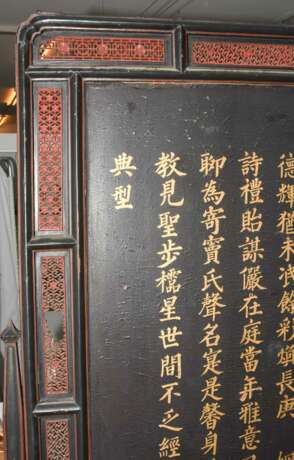 德輝猶未沬餘彩煥長庚
詩禮貽謀儼在庭當年雅意
聊為寄竇氏聲名寔是馨身
教見聖步欞星世間不乏經
典型